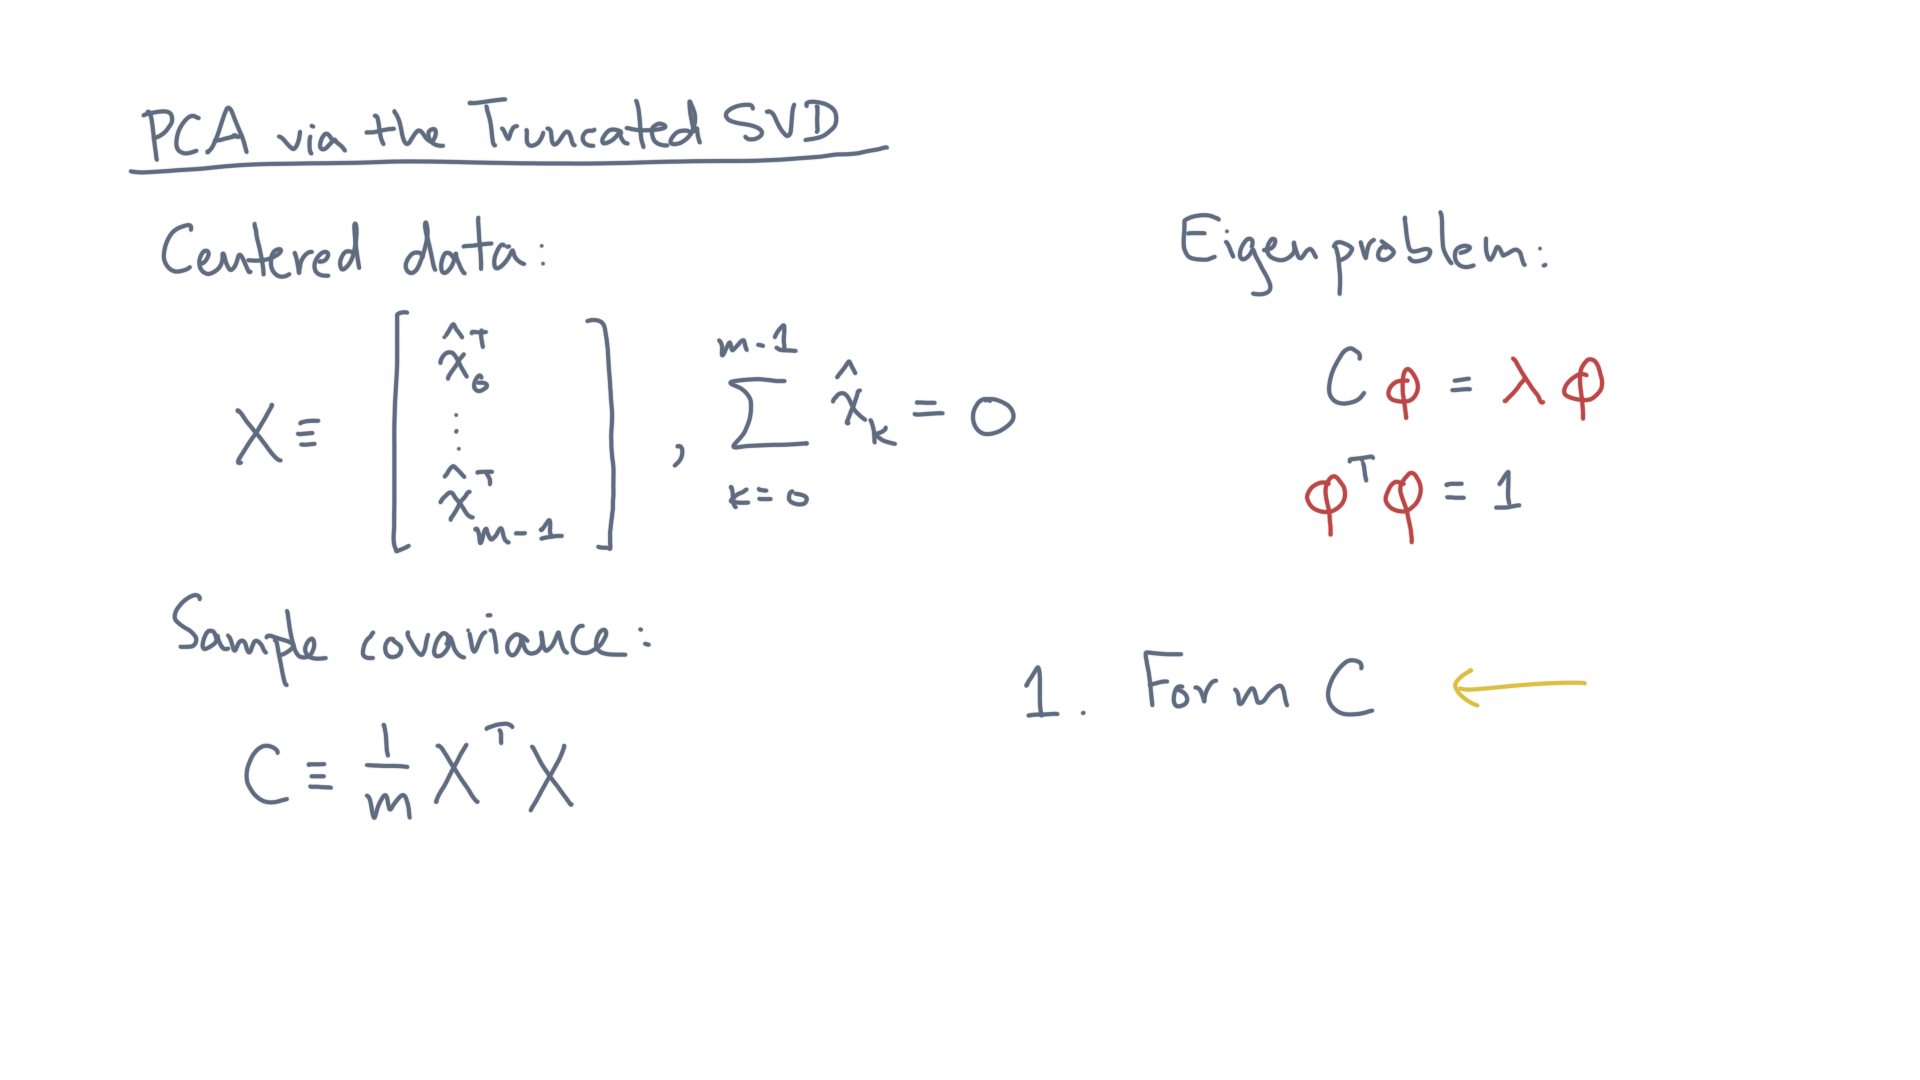 PCA via the Truncated SVD
Centered data:
X ≡ [ x̂₀ᵀ ⋮ x̂ₘ₋₁ᵀ ] , ∑_{k=0}^{m-1} x̂ₖ = 0
Sample covariance:
C ≡ 1/m Xᵀ X
Eigenproblem:
C φ = λ φ
φᵀ φ = 1
1. Form C ←